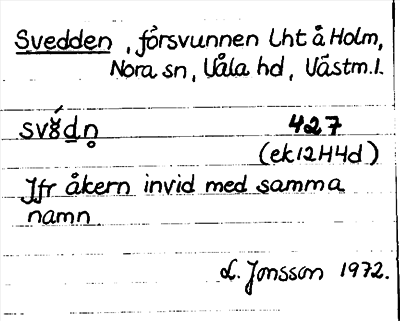 Svedden, försvunnen Lht å Holm,
Nora sn, Våla hd, Västm.l.
svǿdn̥ 427
(ek12H4d)
Jfr åkern invid med samma
namn
L. Jonsson 1972.